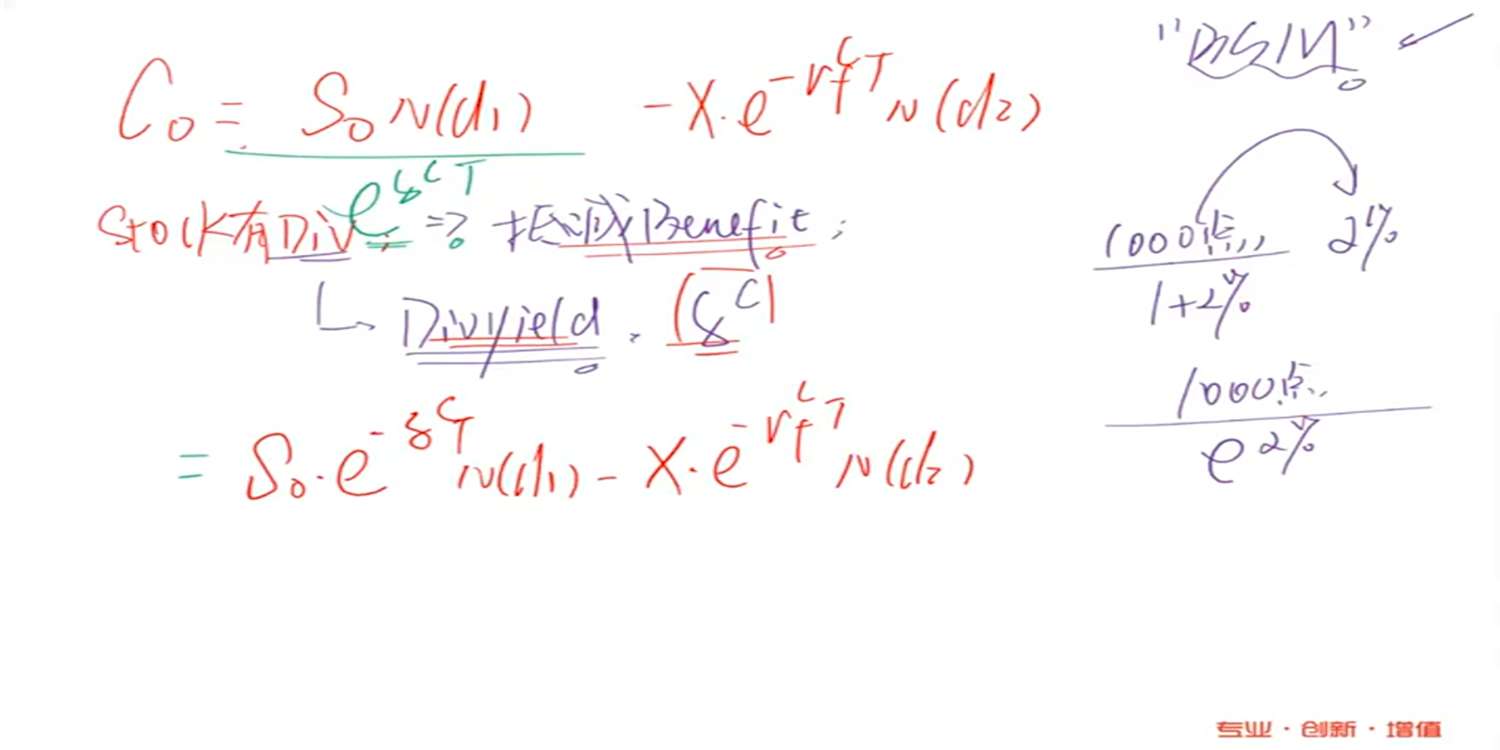 C₀ = S₀ N(d₁) - X·e^{-r_f^c T} N(d₂)
Stock有Div => 扣减Benefit;
e^{δ^c T}
↳ Div yield. (δ^c)
= S₀·e^{-δ^c T} N(d₁) - X·e^{-r_f^c T} N(d₂)
"BSM" ✓
1000点 2%
1+2%
1000点
e^{2%}
专业·创新·增值